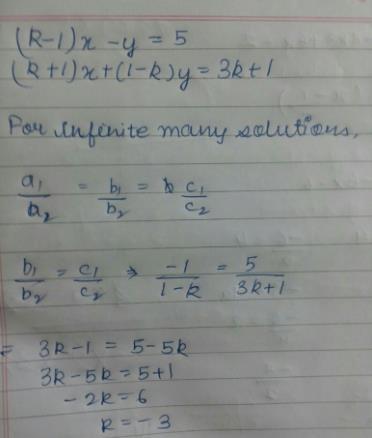 (k-1)x - y = 5
(k+1)x + (1-k)y = 3k+1
For infinite many solutions,
a₁/a₂ = b₁/b₂ = c₁/c₂
b₁/b₂ = c₁/c₂ ⇒ -1/1-k = 5/3k+1
= 3k-1 = 5-5k
3k-5k = 5+1
-2k = 6
k = -3